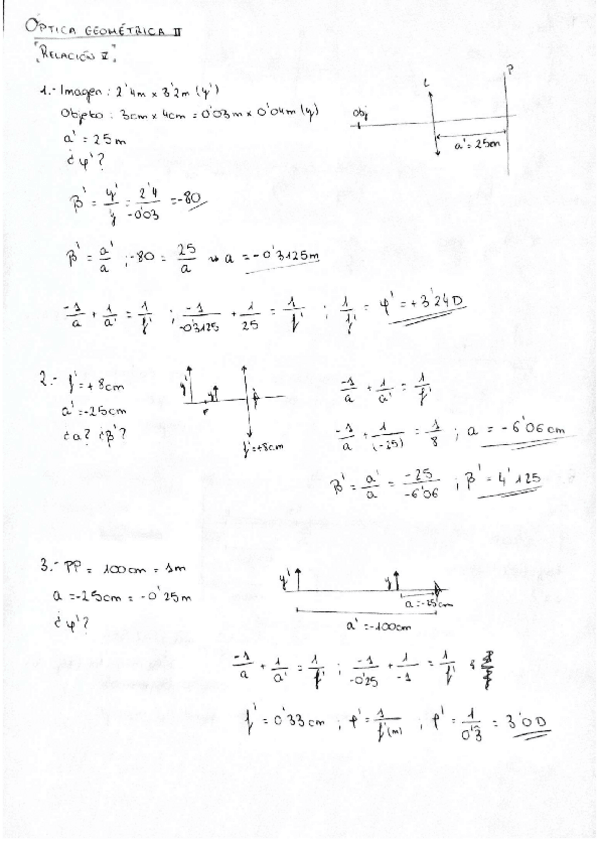 ÓPTICA GEOMÉTRICA II
"RELACIÓN V"
1.- Imagen: 2'4m x 3'2m (y')
Objeto: 3cm x 4cm = 0'03m x 0'04m (y)
a' = 25m
¿φ'?
obj
L
P
a' = 25m
β' = y'/y = 2'4/-0'03 = -80
β' = a'/a ; -80 = 25/a → a = -0'3125m
-1/a + 1/a' = 1/f' ; -1/-0'3125 + 1/25 = 1/f' ; 1/f' = φ' = +3'24D
2.- f' = +8cm
a' = -25cm
¿a? ¿β'?
y'
f' = +8cm
-1/a + 1/a' = 1/f'
-1/a + 1/(-25) = 1/8 ; a = -6'06cm
β' = a'/a = -25/-6'06 ; β' = 4'125
3.- PP = 100cm = 1m
a = -25cm = -0'25m
¿φ'?
y'
y
a = -25cm
a' = -100cm
-1/a + 1/a' = 1/f' ; -1/-0'25 + 1/-1 = 1/f'
f' = 0'33cm ; φ' = 1/f'(m) ; φ' = 1/0'3 = 3'0D